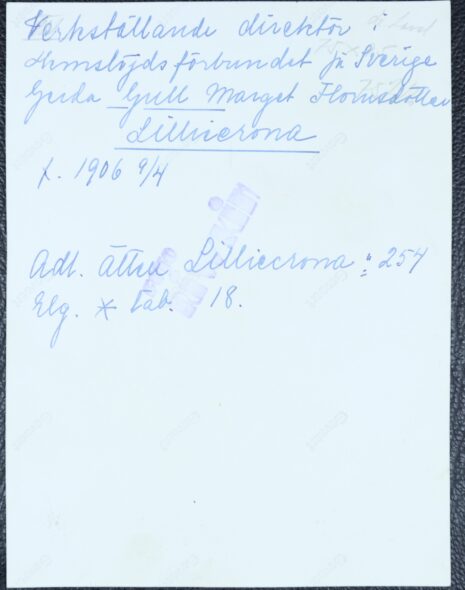 Verkställande direktör i
Hemslöjdsförbundet för Sverige
Gerda Gull Marget
Lilliecrona
f. 1906 9/4
Adl. ätten Lilliecrona : 254
Elg. * tab. 18.